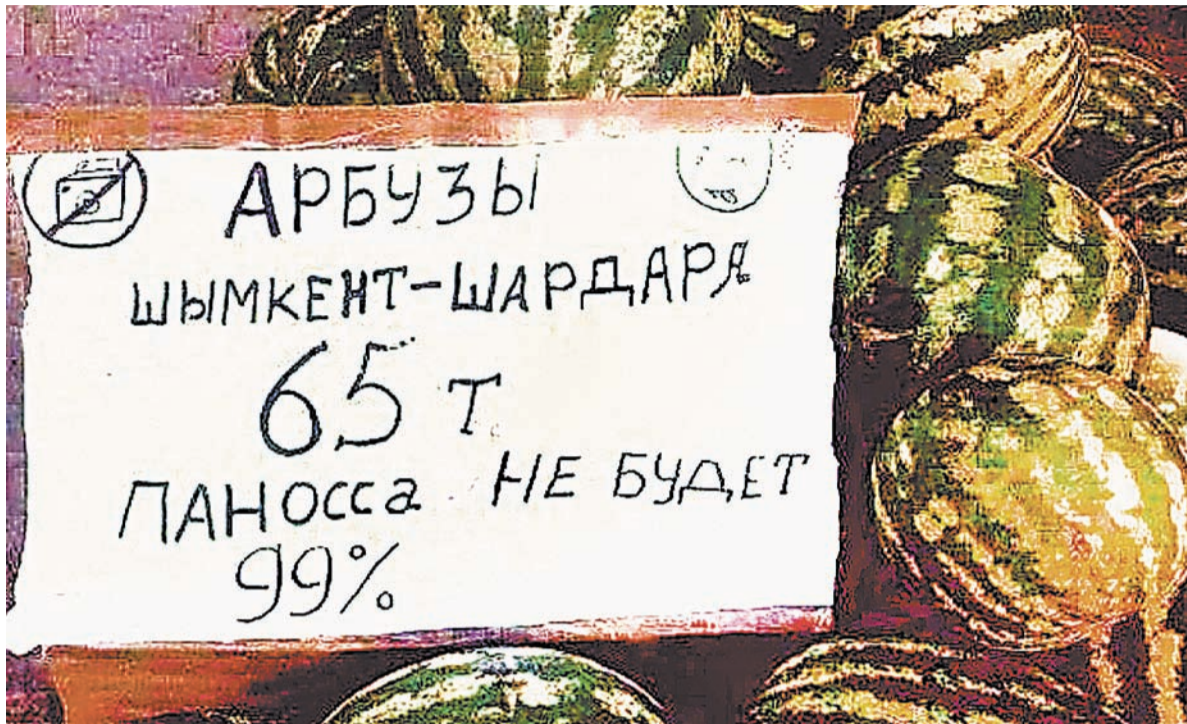 АРБУЗЫ
ШЫМКЕНТ-ШАРДАРА
65 т
ПАНОССа НЕ БУДЕТ
99%